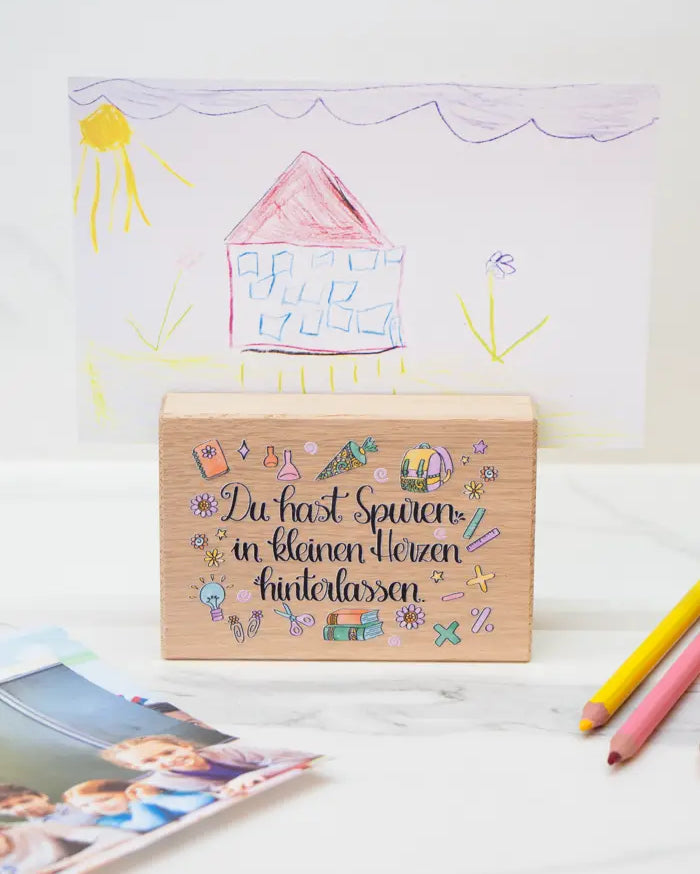 Du hast Spuren
in kleinen Herzen
hinterlassen.